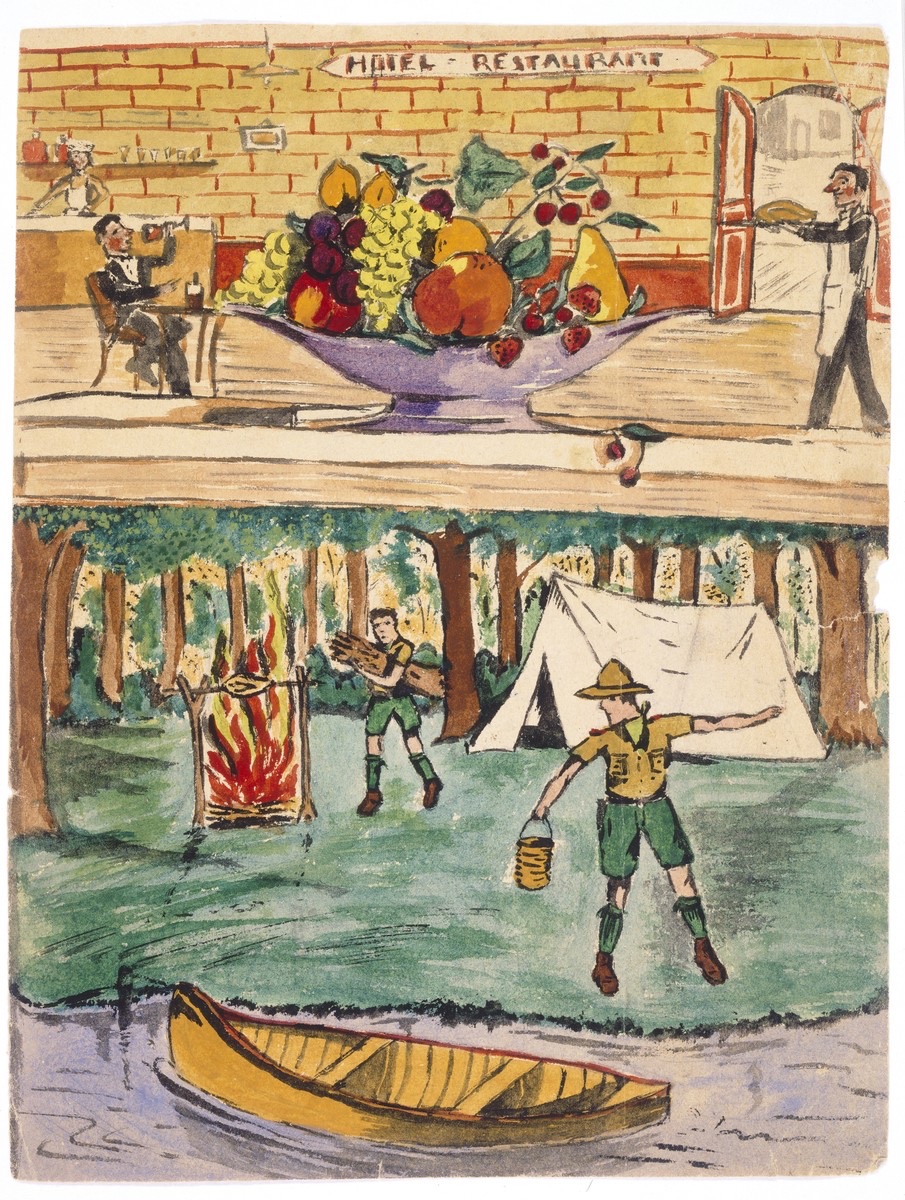 HOTEL - RESTAURANT